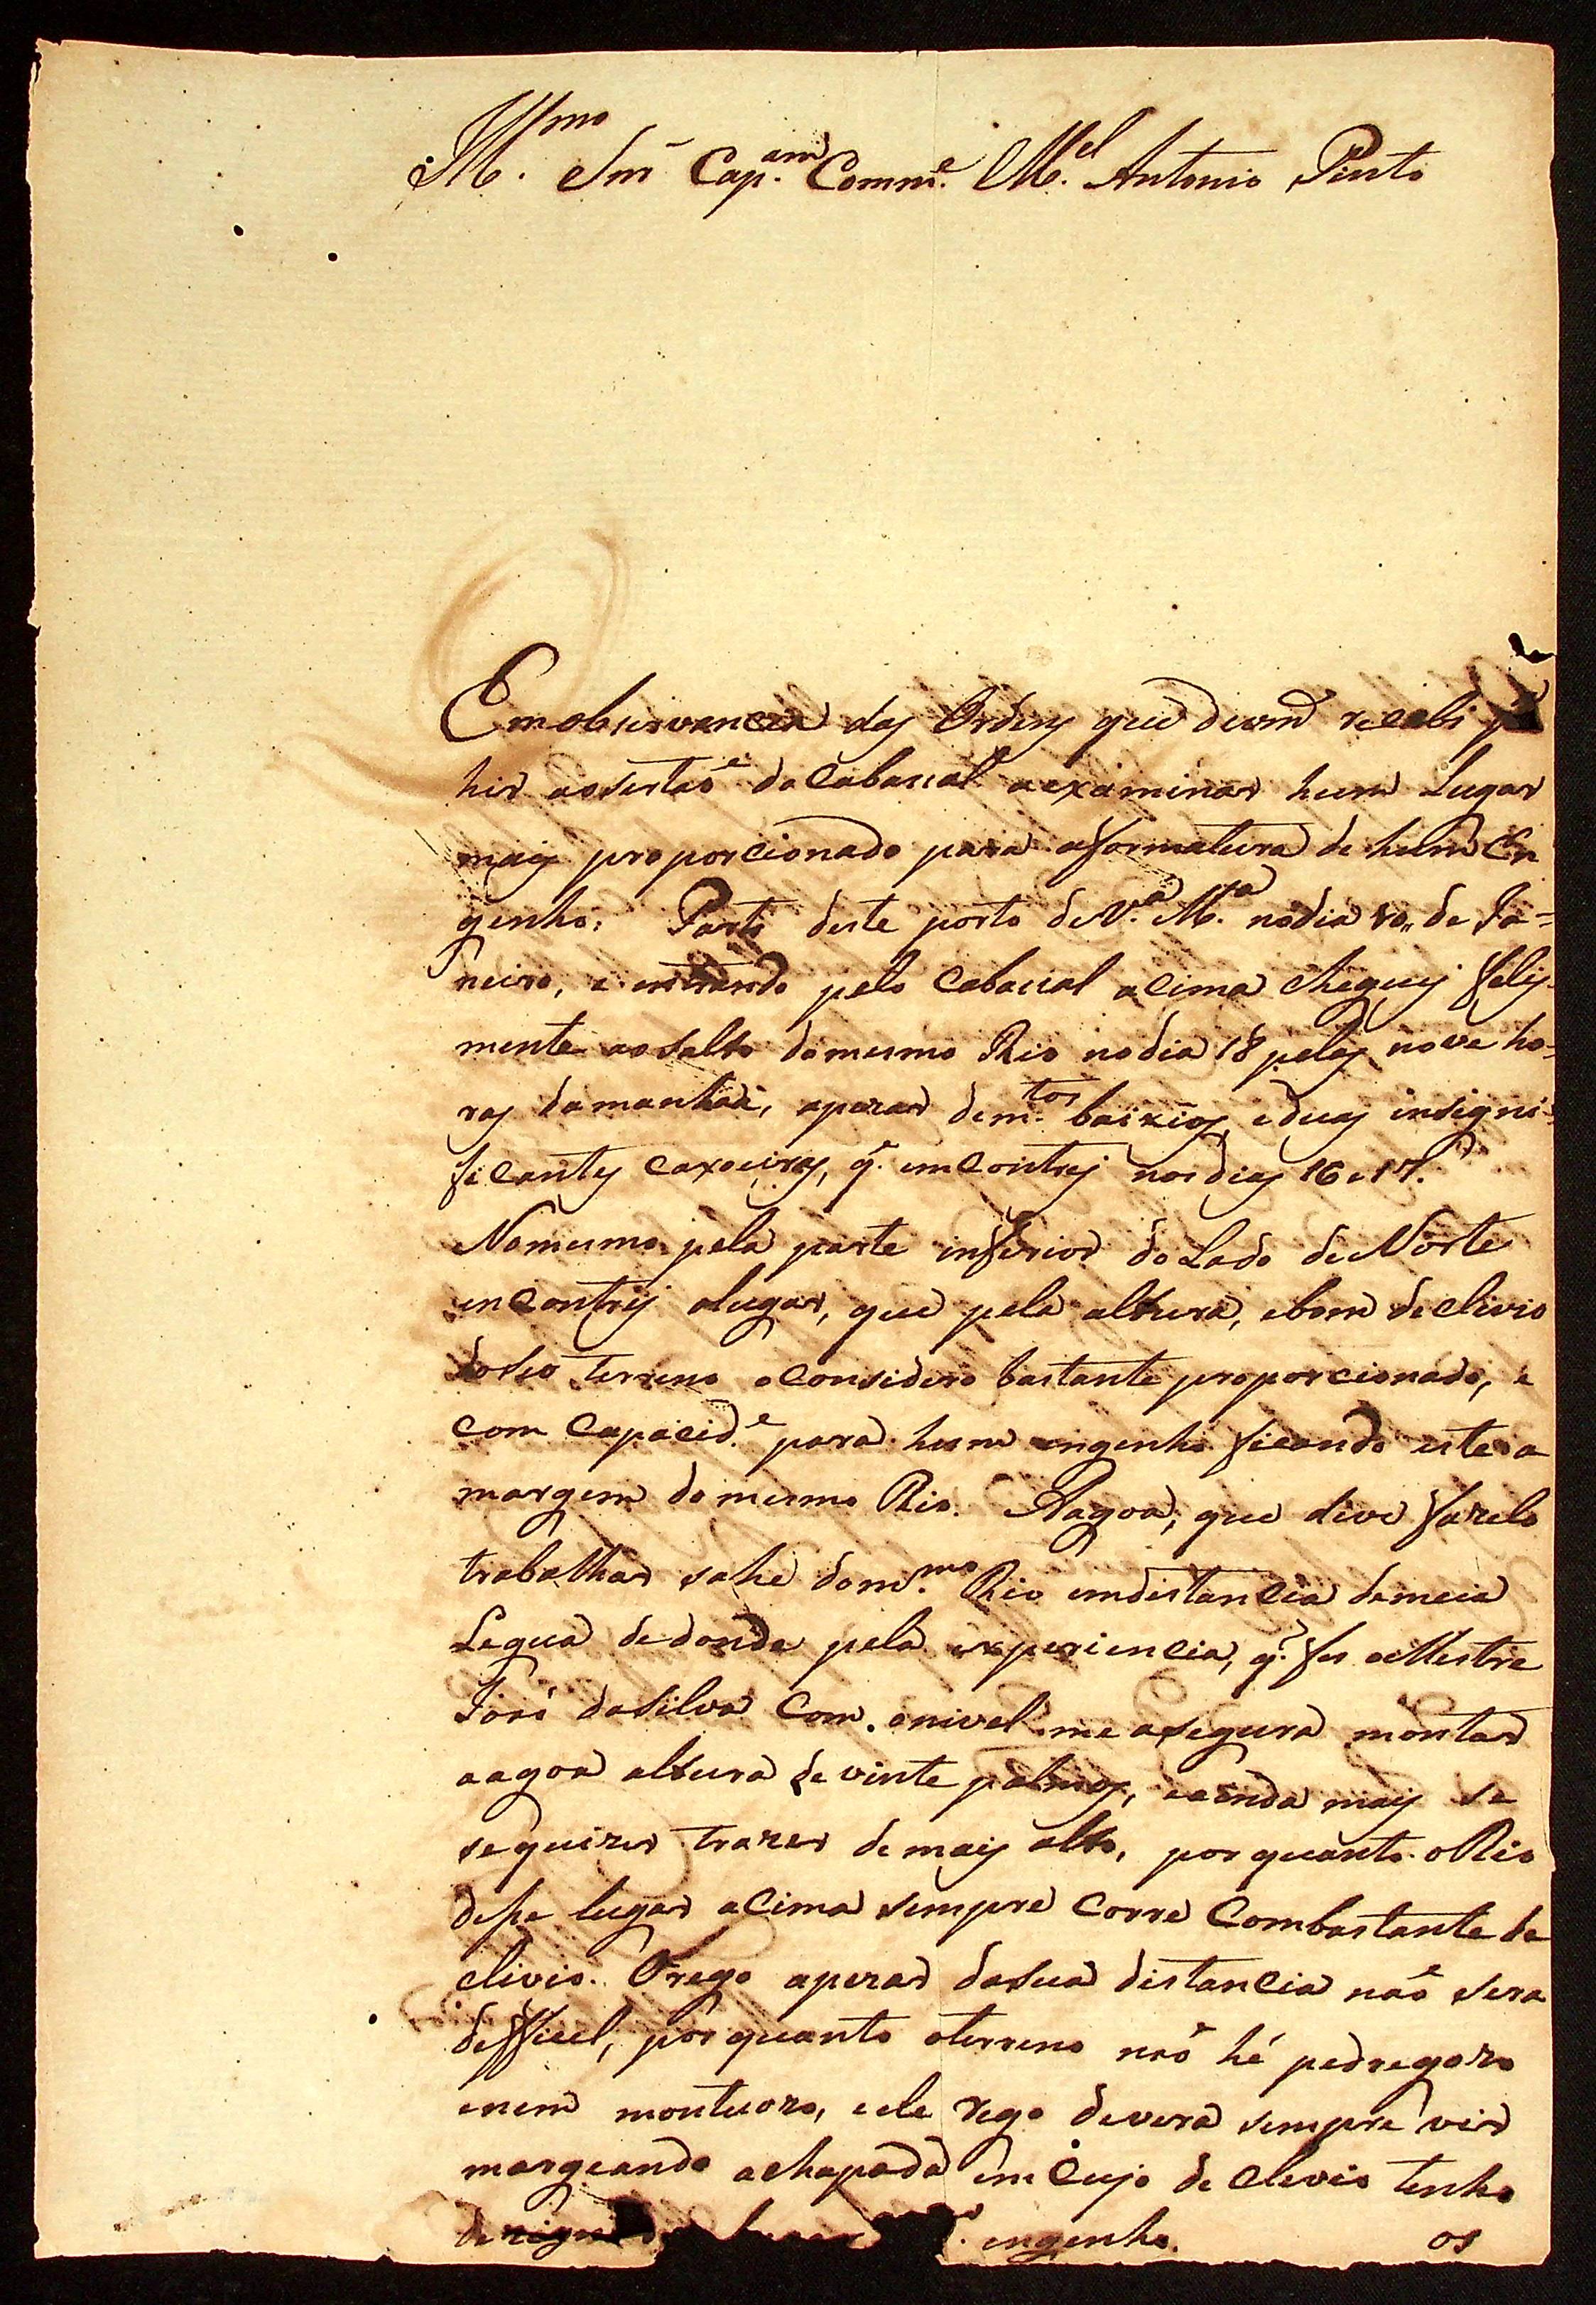 Illmo
M. Snr Cap.am Comm.e M.el Antonio Pinto
Em observancia das Ordens que devmd recebi pa
hir aosertaõ do Cabassal aexaminar hum Lugar
mais proporcionado para aformatura de hum En
genho: Parti deste porto deV.a M.a nodia 10,, de Ja=
neiro, e entrando pelo Cabassal acima cheguej felis-
mente aosalto domesmo Rio nodia 18 pelas nove ho-
ras damanhaã, apezar dem.tos baixios, eduas insigni-
ficantes caxoeiras, q.e emcontrej nos dias 16 e 17.
Nomesmo pela parte inferior do Lado do Norte
encontrej olugar, que pela altura, ebom declivio
doseo terreno oconsidero bastante proporcionado, e
com capacid.e para hum engenho ficando este a
margem domesmo Rio. Aagoa, que deve fazelo
trabalhar sahe dom.mo Rio emdistancia demeia
Legua dedonde pela experiencia, q.e fes oMestre
José daSilva com onivel me asegura montar
aagoa altura de vinte palmos, eainda mais se
sequizer trazer demais alto, porquanto oRio
desse lugar acima sempre corre Combastante de
clivio. Orego apezar dasua distancia naõ sera
defficel, porquanto oterreno naõ hé pedregozo
enem montuozo, eele rego devera sempre vir
margeando achapada emCujo declevio tenho
dezignado engenho. os